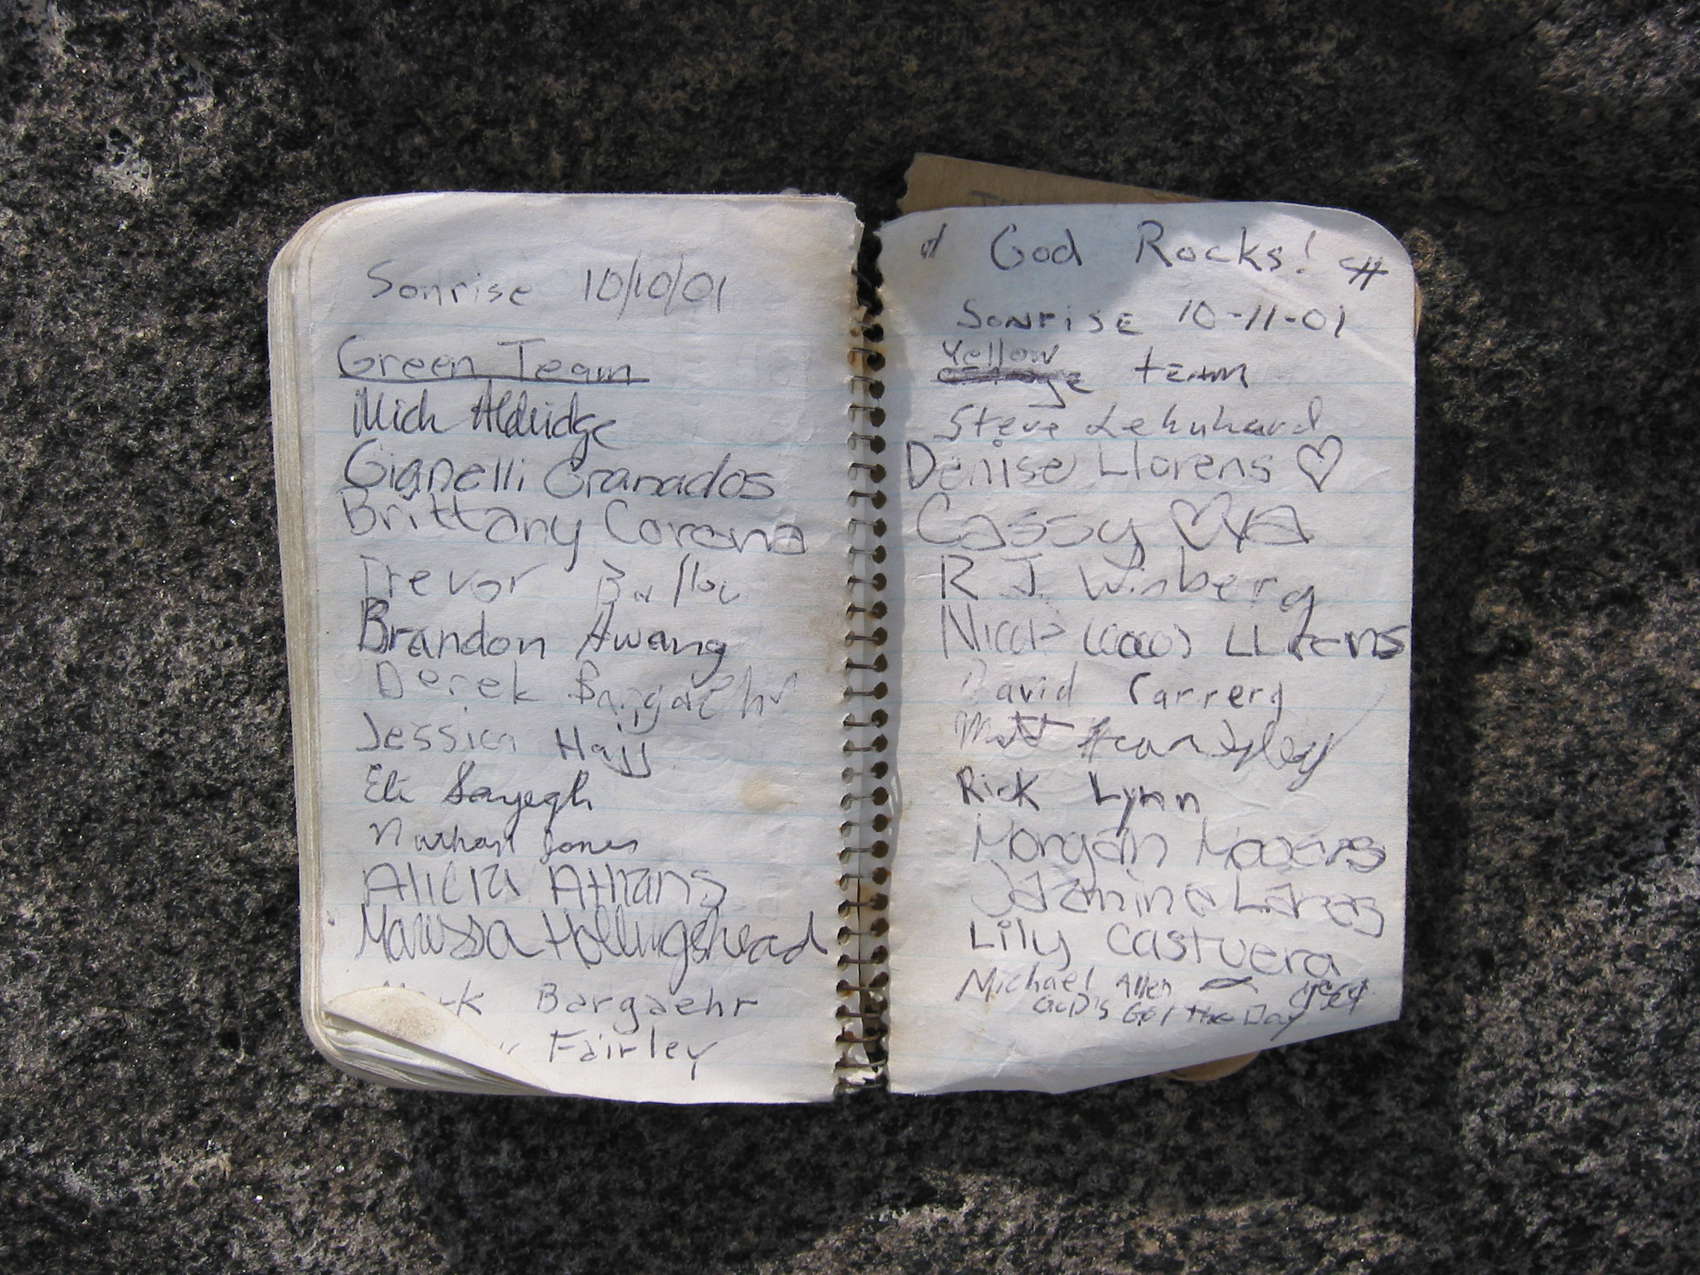 Sonrise 10/10/01
Green Team
Mick Aldridge
Gianelli Granados
Brittany Corona
Trevor
Brandon Awang
Derek Bargaehr
Jessica Hajj
Eli Sayegh
Nathan Jones
Alicia Athans
Marissa Hollingshead
Bargaehr
Fairley
God Rocks!
Sonrise 10-11-01
Yellow
team
Steve Lehnhard
Denise Llorens ♡
Cassy ♡
R J Winberg
Nicole Llorens
David Carrera
Matt
Rick Lynn
Morgan
Jazmine Lares
Lily Castuera
Michael Allen
God's Got the Day